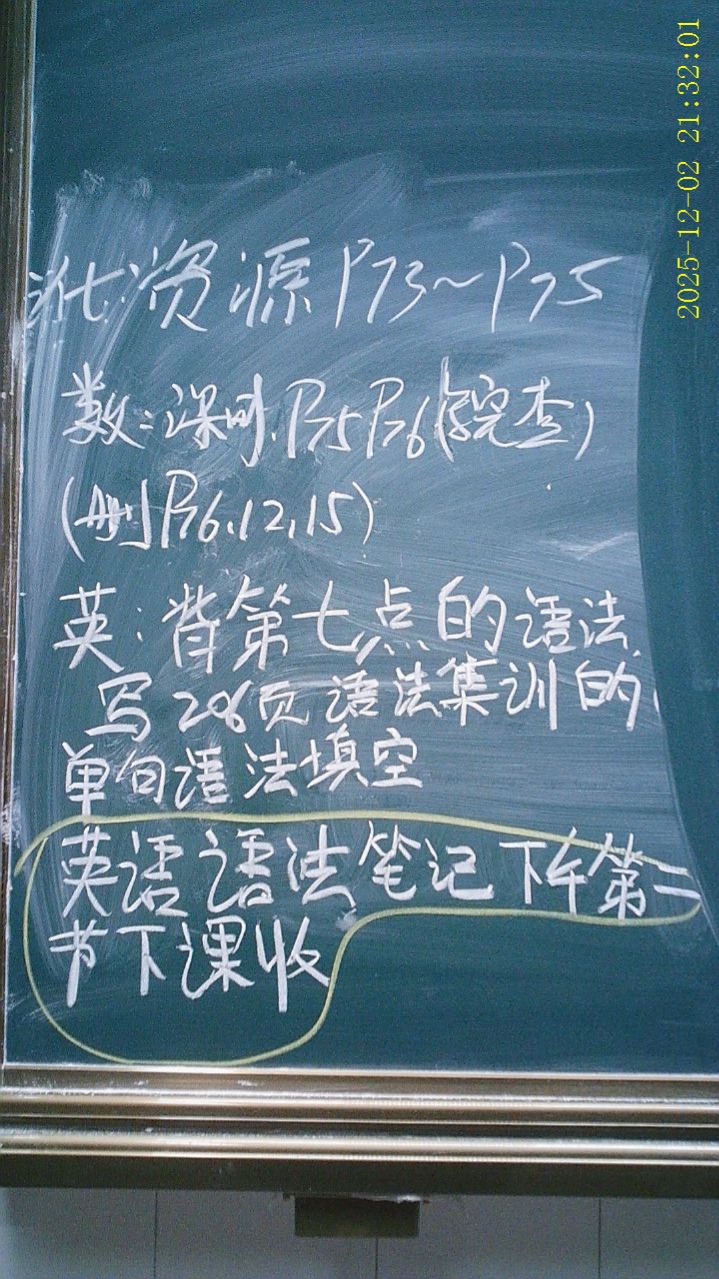 2025-12-02 21:32:01
化:资源 P73~P75
数:课时.P75 P76(完查)
(删P76,12,15)
英:背第七点的语法.
写206页语法集训的
单句语法填空
英语语法笔记下午第二
节下课收